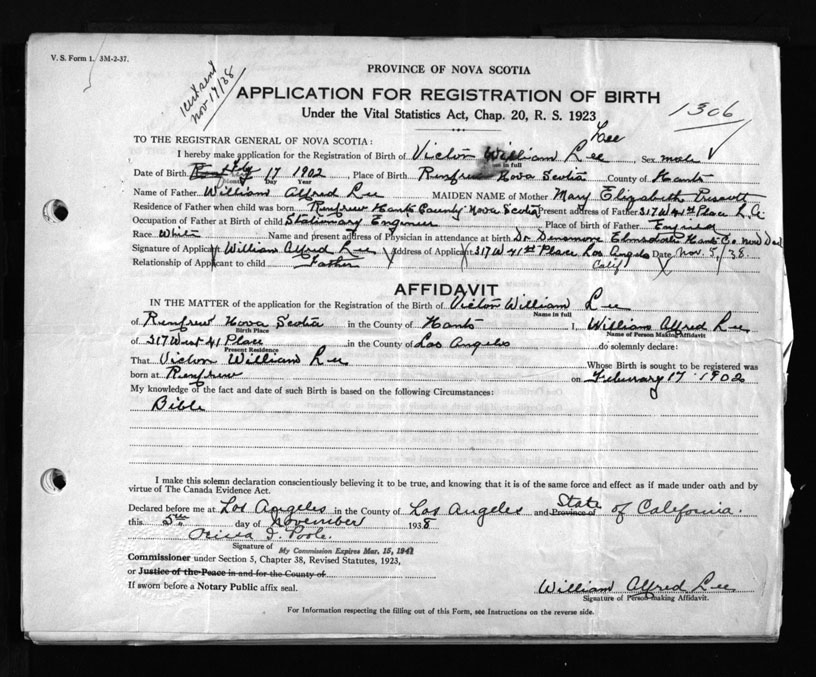 V. S. Form 1. 3M-2-37.
PROVINCE OF NOVA SCOTIA
Nov 17/38
APPLICATION FOR REGISTRATION OF BIRTH
1306
Under the Vital Statistics Act, Chap. 20, R. S. 1923
Lee
TO THE REGISTRAR GENERAL OF NOVA SCOTIA:
I hereby make application for the Registration of Birth of Victor William Lee Sex male
Name in full
Date of Birth Feby 17 1902 Place of Birth Renfrew Nova Scotia County of Hants
Month Day Year
Name of Father William Alfred Lee MAIDEN NAME of Mother Mary Elizabeth
Residence of Father when child was born Renfrew Hants County Nova Scotia Present address of Father 317 W 41st Place L. A.
Occupation of Father at Birth of child Stationary Engineer Place of birth of Father Enfield
Race White Name and present address of Physician in attendance at birth Dr Dinsmore Hants Co now Dead
Signature of Applicant William Alfred Lee Address of Applicant 317 W 41st Place Los Angeles Date Nov. 5, 38.
Calif
Relationship of Applicant to child Father
AFFIDAVIT
IN THE MATTER of the application for the Registration of the Birth of Victor William Lee
Name in full
of Renfrew Nova Scotia in the County of Hants I, William Alfred Lee
Birth Place Name of Person Making Affidavit
of 317 West 41 Place in the County of Los Angeles do solemnly declare:
Present Residence
That Victor William Lee Whose Birth is sought to be registered was
born at Renfrew on February 17 1902
My knowledge of the fact and date of such Birth is based on the following Circumstances:
Bible
I make this solemn declaration conscientiously believing it to be true, and knowing that it is of the same force and effect as if made under oath and by
virtue of The Canada Evidence Act.
Declared before me at Los Angeles in the County of Los Angeles and Province of State of California.
this 5th day of November 1938
Poole
Signature of My Commission Expires Mar. 15, 1941
Commissioner under Section 5, Chapter 38, Revised Statutes, 1923,
or Justice of the Peace in and for the County of
If sworn before a Notary Public affix seal.
William Alfred Lee
Signature of Person making Affidavit.
For Information respecting the filling out of this Form, see Instructions on the reverse side.